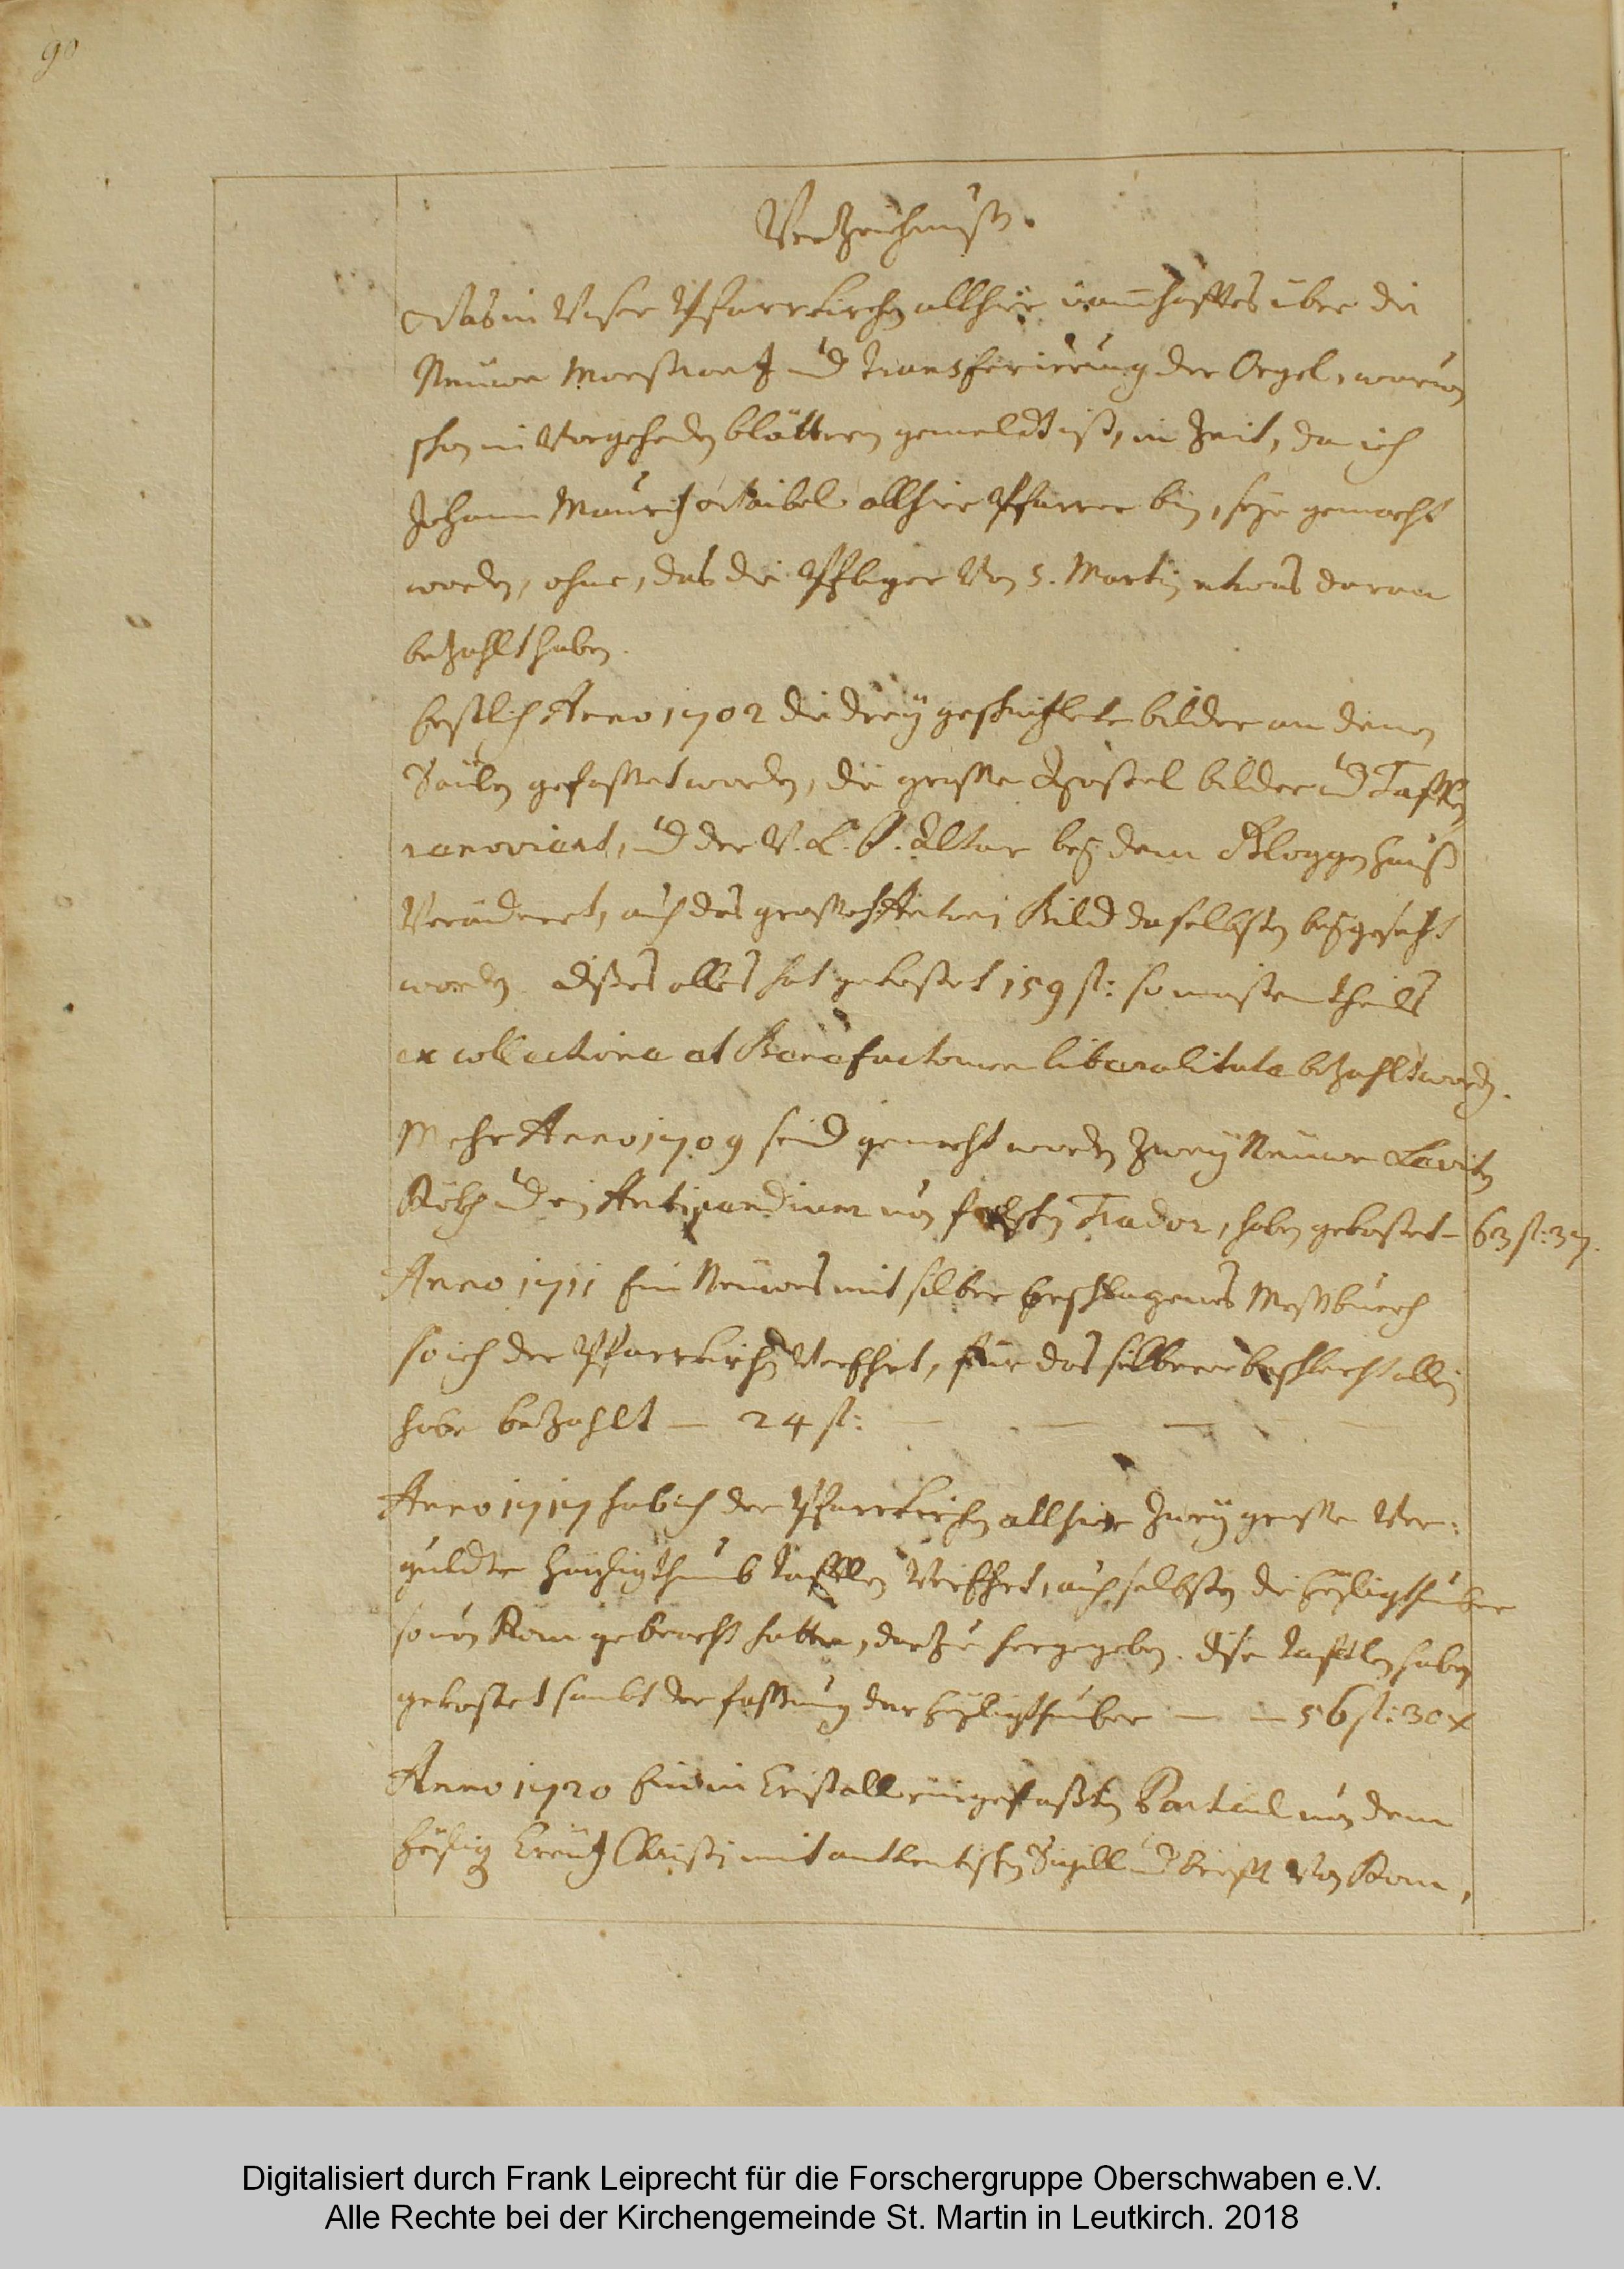 90
Verzeichnuß.
Was in Unser Pfarrkirchen allhier namhafftes über die
Neuwe und transferierung der Orgel, waruon
schon in Vorgehenden blättern gemeldt ist, in Zeit, da ich
Johann Mauritz Waibel allhier Pfarrer bin, seye gemacht
worden, ohne, das die Pfleger Von S. Martin etwas daran
bezahlt haben.
Erstlich Anno 1702 die dreÿ geschnitzlete bilder an denen
Säulen gefasset worden, die grosse Apostel bilder und Tafflen
renoviert, und der V. L. F. Altar beÿ dem Gloggenhauß
Verändert, auch das grosse Bild daselbsten beÿgesetzt
worden. dises alles hat gekostet 159 fl: so meistentheils
ex collectione et Benefactorum liberalitate bezahlt worden.
Mehr Anno 1709 seind gemacht worden Zweÿ Neuwe Leviten
Röckh und ein Antipendium von, haben gekostet – 63 fl: 37.
Anno 1711 Ein Neuwes mit silber beschlagenes Messbuech
so ich der Pfarrkirchen Verehrt, für das silberne beschlecht allein
habe bezahlt — 24 fl: — — — —
Anno 1717 hab ich der Pfarrkirchen allhier Zweÿ grosse Ver:
guldte Heÿligthumb tafflen Verehrt, auch selbsten die heÿligthumber
so von Rom gebracht hatte, darzue hergegeben. dise tafflen haben
gekostet sambt der fassung der heÿligthumber — — 56 fl: 30 x
Anno 1720 Ein in Cristall eingefaßten Particul von dem
heÿlig Creutz Christi mit authentischen Sigill und brieff Von Rom,
Digitalisiert durch Frank Leiprecht für die Forschergruppe Oberschwaben e.V.
Alle Rechte bei der Kirchengemeinde St. Martin in Leutkirch. 2018